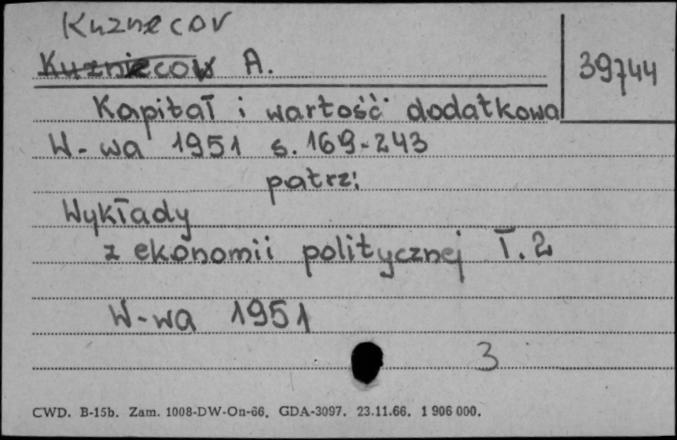 Kuznecov
Kuzniecow A.
39744
Kapitał i wartość dodatkowa
W-wa 1951 s. 169-243
patrz:
Wykłady
z ekonomii politycznej T. 2
W-wa 1951
3
CWD. B-15b. Zam. 1008-DW-On-66. GDA-3097. 23.11.66. 1 906 000.